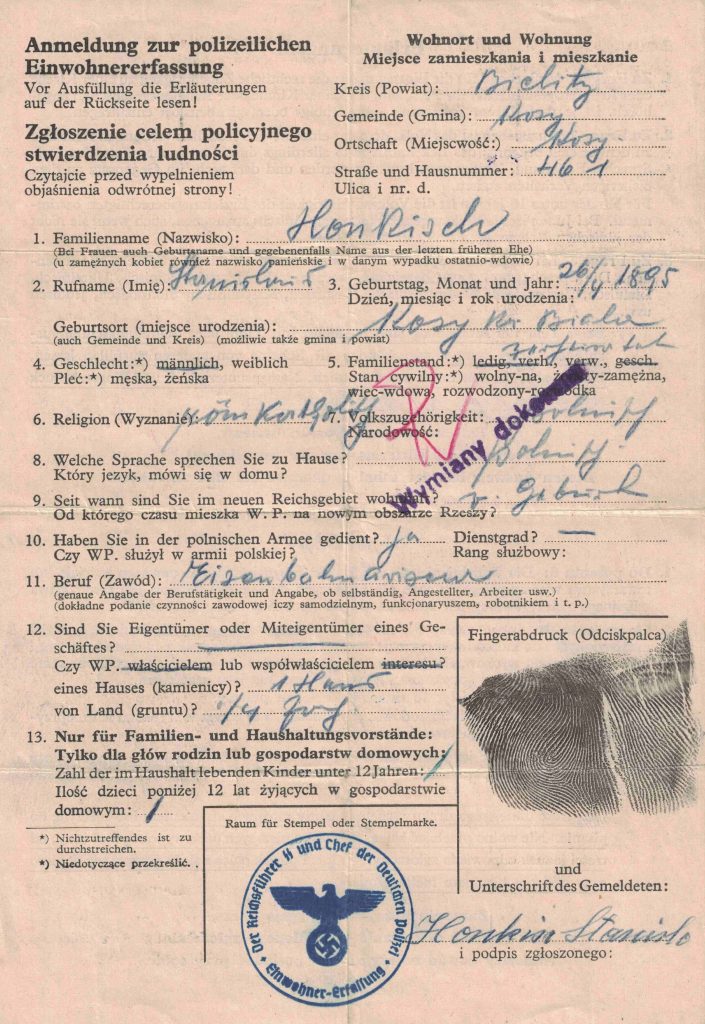 Anmeldung zur polizeilichen
Einwohnererfassung
Vor Ausfüllung die Erläuterungen
auf der Rückseite lesen!
Zgłoszenie celem policyjnego
stwierdzenia ludności
Czytajcie przed wypełnieniem
objaśnienia odwrótnej strony!
Wohnort und Wohnung
Miejsce zamieszkania i mieszkanie
Kreis (Powiat): Bielitz
Gemeinde (Gmina): Kosy
Ortschaft (Miejscwość:) Kosy
Straße und Hausnummer: 461
Ulica i nr. d.
1. Familienname (Nazwisko): Honkisch
(Bei Frauen auch Geburtsname und gegebenenfalls Name aus der letzten früheren Ehe)
(u zamężnych kobiet również nazwisko panieńskie i w danym wypadku ostatnio-wdowie)
2. Rufname (Imię): Stanislaus
3. Geburtstag, Monat und Jahr: 26/4 1895
Dzień, miesiąc i rok urodzenia:
Geburtsort (miejsce urodzenia): Kosy Kr. Biala
(auch Gemeinde und Kreis) (możliwie także gmina i powiat)
4. Geschlecht:*) männlich, weiblich
Pleć:*) męska, żeńska
5. Familienstand:*) ledig, verh., verw., gesch.
Stan cywilny:*) wolny-na, żonaty-zamężna,
wiec-wdowa, rozwodzony-rozwódka
6. Religion (Wyznanie): röm Katholisch
7. Volkszugehörigkeit: Polnisch
Narodowość:
Wymiany dokonano
8. Welche Sprache sprechen Sie zu Hause? Polnisch
Który język, mówi się w domu?
9. Seit wann sind Sie im neuen Reichsgebiet wohnhaft? v. Geburt
Od którego czasu mieszka W. P. na nowym obszarze Rzeszy?
10. Haben Sie in der polnischen Armee gedient? ja Dienstgrad? —
Czy WP. służył w armii polskiej? Rang służbowy:
11. Beruf (Zawód): Eisenbahnrviseur
(genaue Angabe der Berufstätigkeit und Angabe, ob selbständig, Angestellter, Arbeiter usw.)
(dokładne podanie czynności zawodowej iczy samodzielnym, funkcjonaryuszem, robotnikiem i t. p.)
12. Sind Sie Eigentümer oder Miteigentümer eines Ge-
schäftes?
Czy WP. właścicielem lub współwłaścicielem interesu?
eines Hauses (kamienicy)? 1 Haus
von Land (gruntu)? 1/4 Joch
13. Nur für Familien- und Haushaltungsvorstände:
Tylko dla głów rodzin lub gospodarstw domowych:
Zahl der im Haushalt lebenden Kinder unter 12 Jahren: 1
Ilość dzieci poniżej 12 lat żyjących w gospodarstwie
domowym: 1
*) Nichtzutreffendes ist zu
durchstreichen.
*) Niedotyczące przekreślić.
Raum für Stempel oder Stempelmarke.
Der Reichsführer SS und Chef der Deutschen Polizei
Einwohner-Erfassung
Fingerabdruck (Odciskpalca)
und
Unterschrift des Gemeldeten:
Honkisz Stanisła
i podpis zgłoszonego: